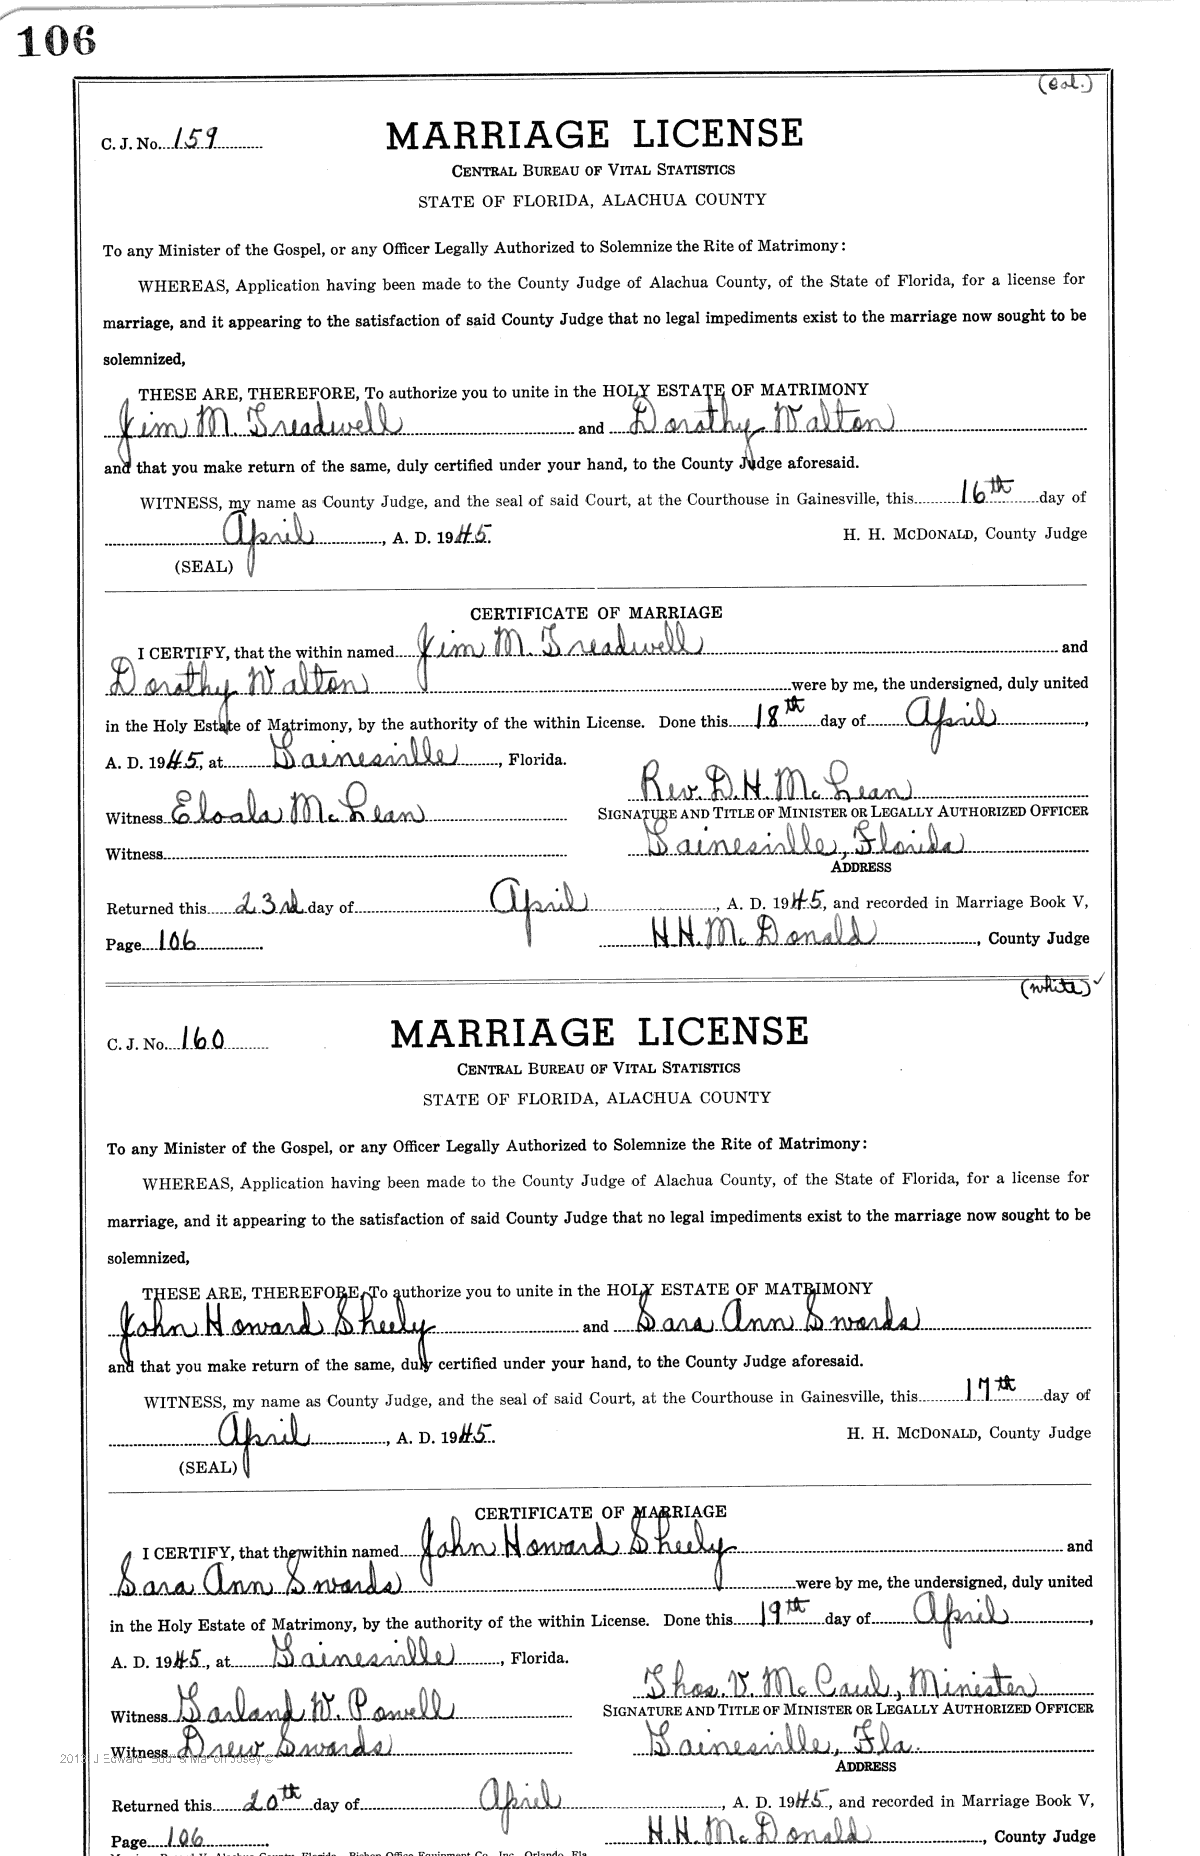 106
(col.)
C. J. No. 159
MARRIAGE LICENSE
CENTRAL BUREAU OF VITAL STATISTICS
STATE OF FLORIDA, ALACHUA COUNTY
To any Minister of the Gospel, or any Officer Legally Authorized to Solemnize the Rite of Matrimony:
WHEREAS, Application having been made to the County Judge of Alachua County, of the State of Florida, for a license for
marriage, and it appearing to the satisfaction of said County Judge that no legal impediments exist to the marriage now sought to be
solemnized,
THESE ARE, THEREFORE, To authorize you to unite in the HOLY ESTATE OF MATRIMONY
Jim M. Treadwell and Dorothy Walton
and that you make return of the same, duly certified under your hand, to the County Judge aforesaid.
WITNESS, my name as County Judge, and the seal of said Court, at the Courthouse in Gainesville, this 16th day of
April, A. D. 1945. H. H. MCDONALD, County Judge
(SEAL)
CERTIFICATE OF MARRIAGE
I CERTIFY, that the within named Jim M. Treadwell and
Dorothy Walton were by me, the undersigned, duly united
in the Holy Estate of Matrimony, by the authority of the within License. Done this 18th day of April,
A. D. 1945, at Gainesville, Florida.
Rev. D. H. McLean
Witness Eloala McLean SIGNATURE AND TITLE OF MINISTER OR LEGALLY AUTHORIZED OFFICER
Witness Gainesville, Florida
ADDRESS
Returned this 23rd day of April, A. D. 1945, and recorded in Marriage Book V,
Page 106 H. H. McDonald, County Judge
(white) ✓
C. J. No. 160
MARRIAGE LICENSE
CENTRAL BUREAU OF VITAL STATISTICS
STATE OF FLORIDA, ALACHUA COUNTY
To any Minister of the Gospel, or any Officer Legally Authorized to Solemnize the Rite of Matrimony:
WHEREAS, Application having been made to the County Judge of Alachua County, of the State of Florida, for a license for
marriage, and it appearing to the satisfaction of said County Judge that no legal impediments exist to the marriage now sought to be
solemnized,
THESE ARE, THEREFORE, To authorize you to unite in the HOLY ESTATE OF MATRIMONY
John Howard Sheely and Sara Ann Swords
and that you make return of the same, duly certified under your hand, to the County Judge aforesaid.
WITNESS, my name as County Judge, and the seal of said Court, at the Courthouse in Gainesville, this 17th day of
April, A. D. 1945. H. H. MCDONALD, County Judge
(SEAL)
CERTIFICATE OF MARRIAGE
I CERTIFY, that the within named John Howard Sheely and
Sara Ann Swords were by me, the undersigned, duly united
in the Holy Estate of Matrimony, by the authority of the within License. Done this 19th day of April,
A. D. 1945, at Gainesville, Florida.
Thos. V. McCaul, Minister
Witness Garland W. Powell SIGNATURE AND TITLE OF MINISTER OR LEGALLY AUTHORIZED OFFICER
Witness Drew Swords Gainesville, Fla.
ADDRESS
Returned this 20th day of April, A. D. 1945, and recorded in Marriage Book V,
Page 106 H. H. McDonald, County Judge